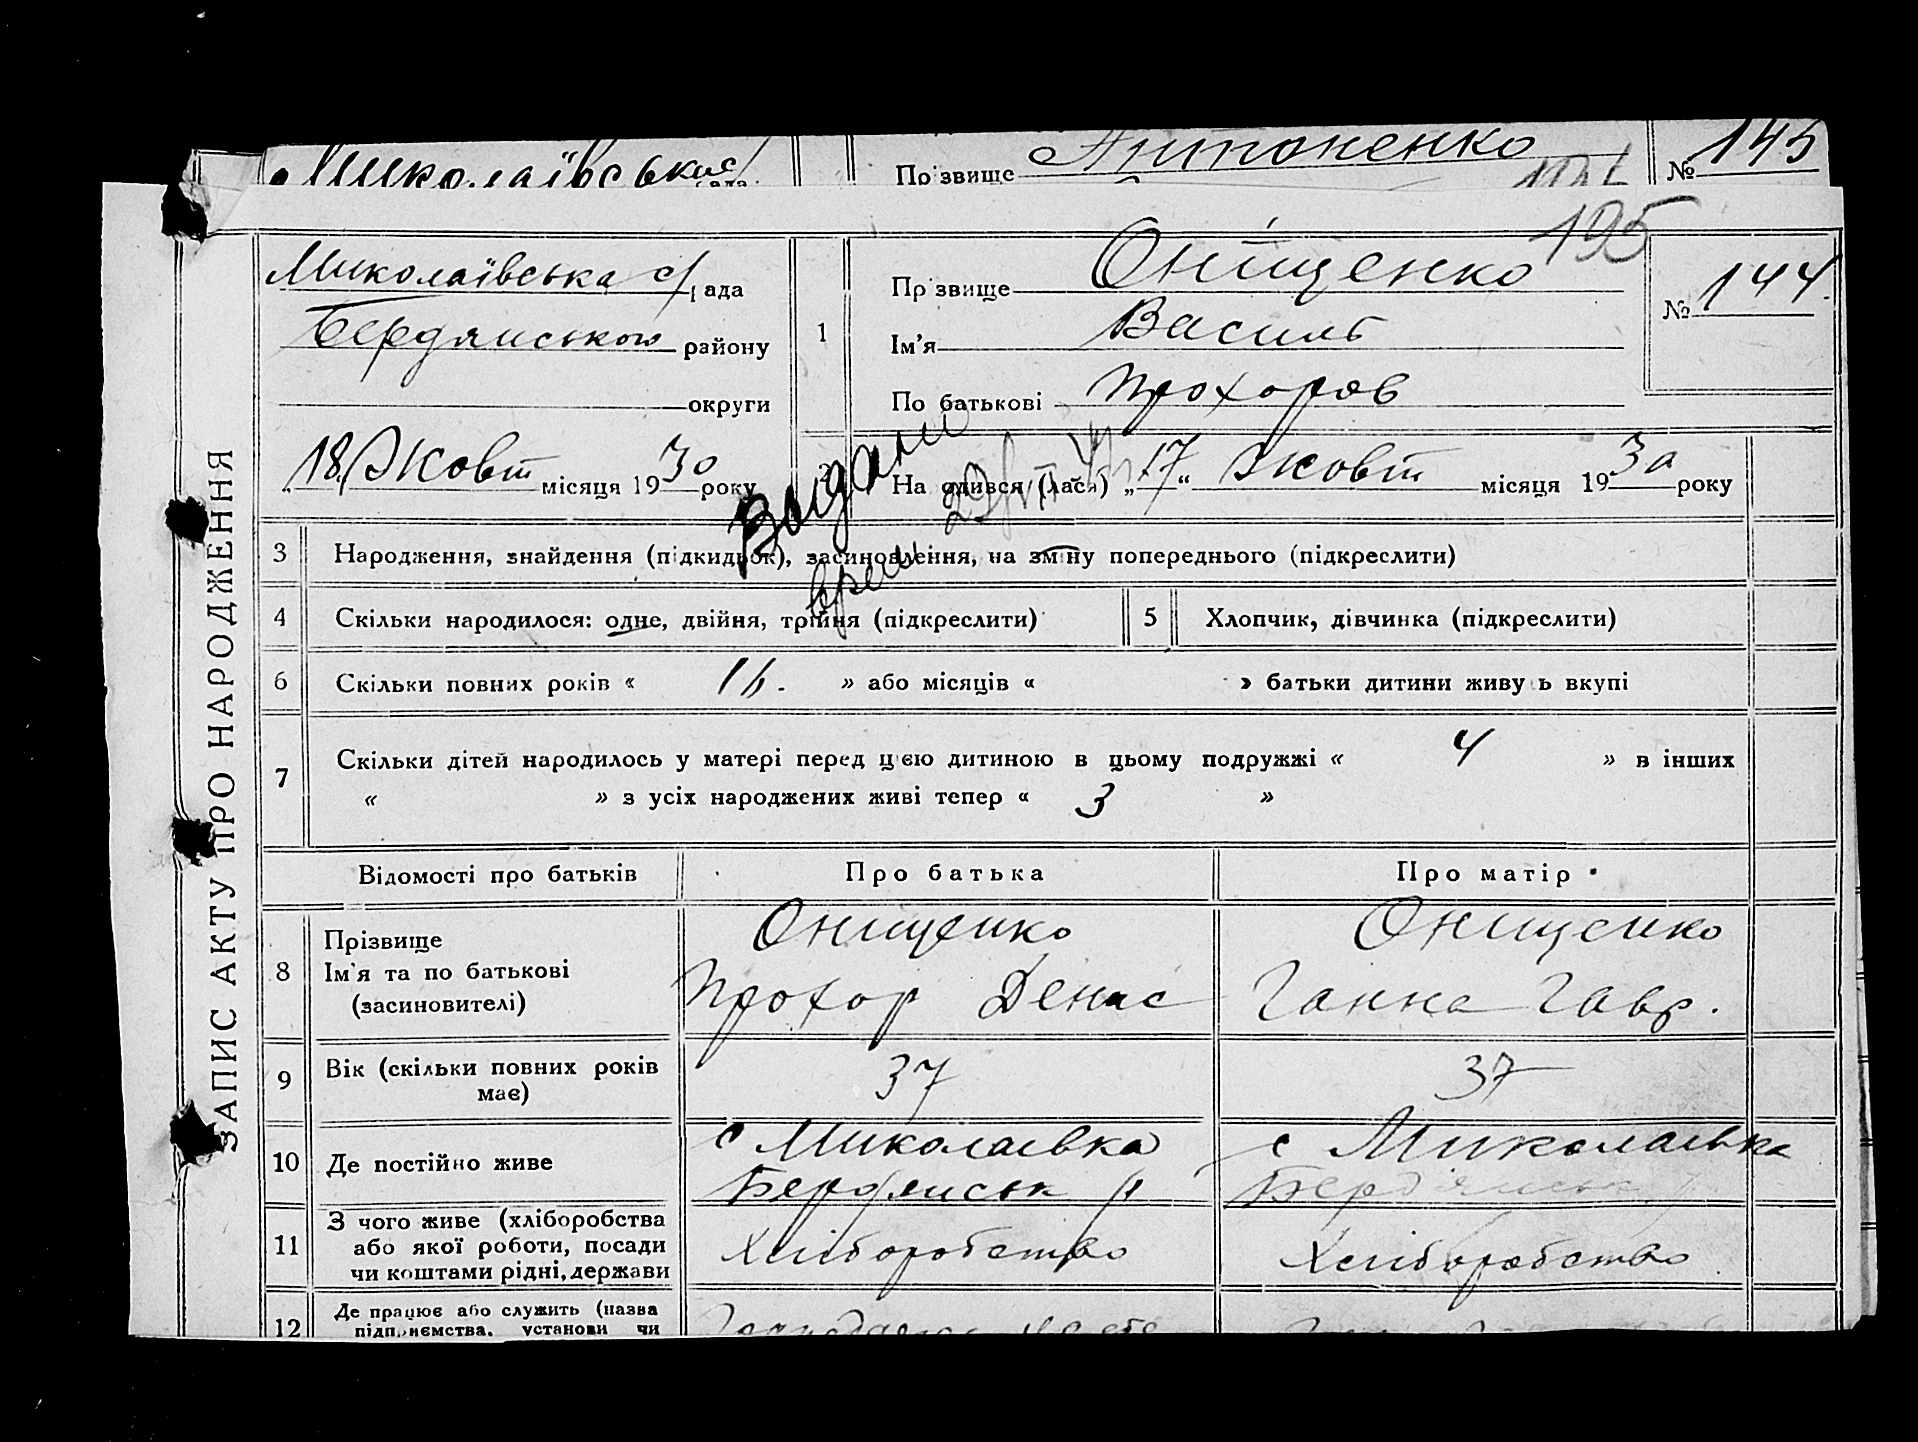 Миколаївська
Прізвище Антоненко
№ 145
195
Миколаївська с/рада
Бердянського району
округи
18 Жовт місяця 1930 року
1
Прізвище Оніщенко
Ім'я Василь
По батькові Прохоров
№ 144.
Видани
На одився (лася) „17“ Жовт місяця 1930 року
ЗАПИС АКТУ ПРО НАРОДЖЕННЯ
3 Народження, знайдення (підкидьок), засиновлення, на зміну попереднього (підкреслити)
4 Скільки народилося: одне, двійня, трійня (підкреслити)
5 Хлопчик, дівчинка (підкреслити)
6 Скільки повних років « 16. » або місяців « » батьки дитини живу ь вкупі
7 Скільки дітей народилось у матері перед цією дитиною в цьому подружжі « 4 » в інших
« » з усіх народжених живі тепер « 3 »
Відомості про батьків Про батька Про матір
8 Прізвище Онищенко Онищенко
Ім'я та по батькові Прохор Денис Ганна Гавр.
(засиновителі)
9 Вік (скільки повних років має) 37 37
10 Де постійно живе с Миколаївка с Миколаївка
Бердянськ р Бердянськ
11 З чого живе (хліборобства Хліборобство Хліборобство
або якої роботи, посади
чи коштами рідні, держави
12 Де працює або служить (назва
підприємства, установи чи